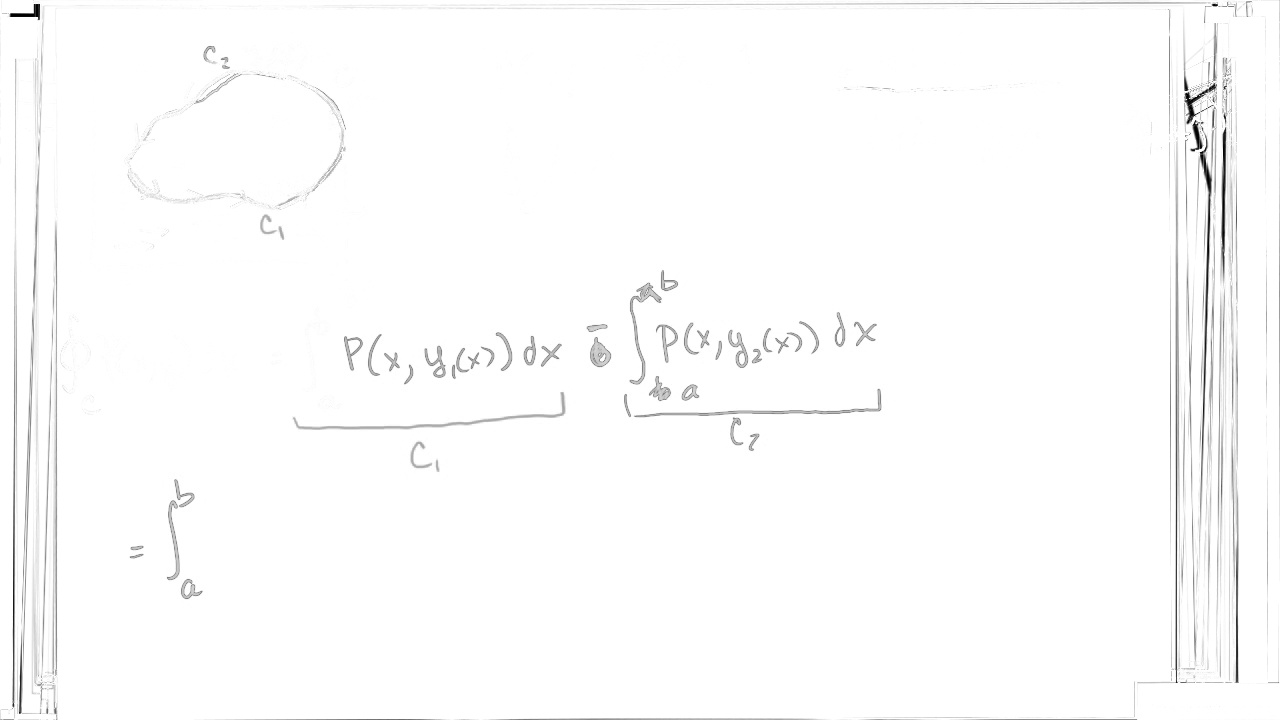 C₂
C₁
P(x, y₁(x)) dx - ∫ₐᵇ P(x, y₂(x)) dx
C₁ C₂
= ∫ₐᵇ